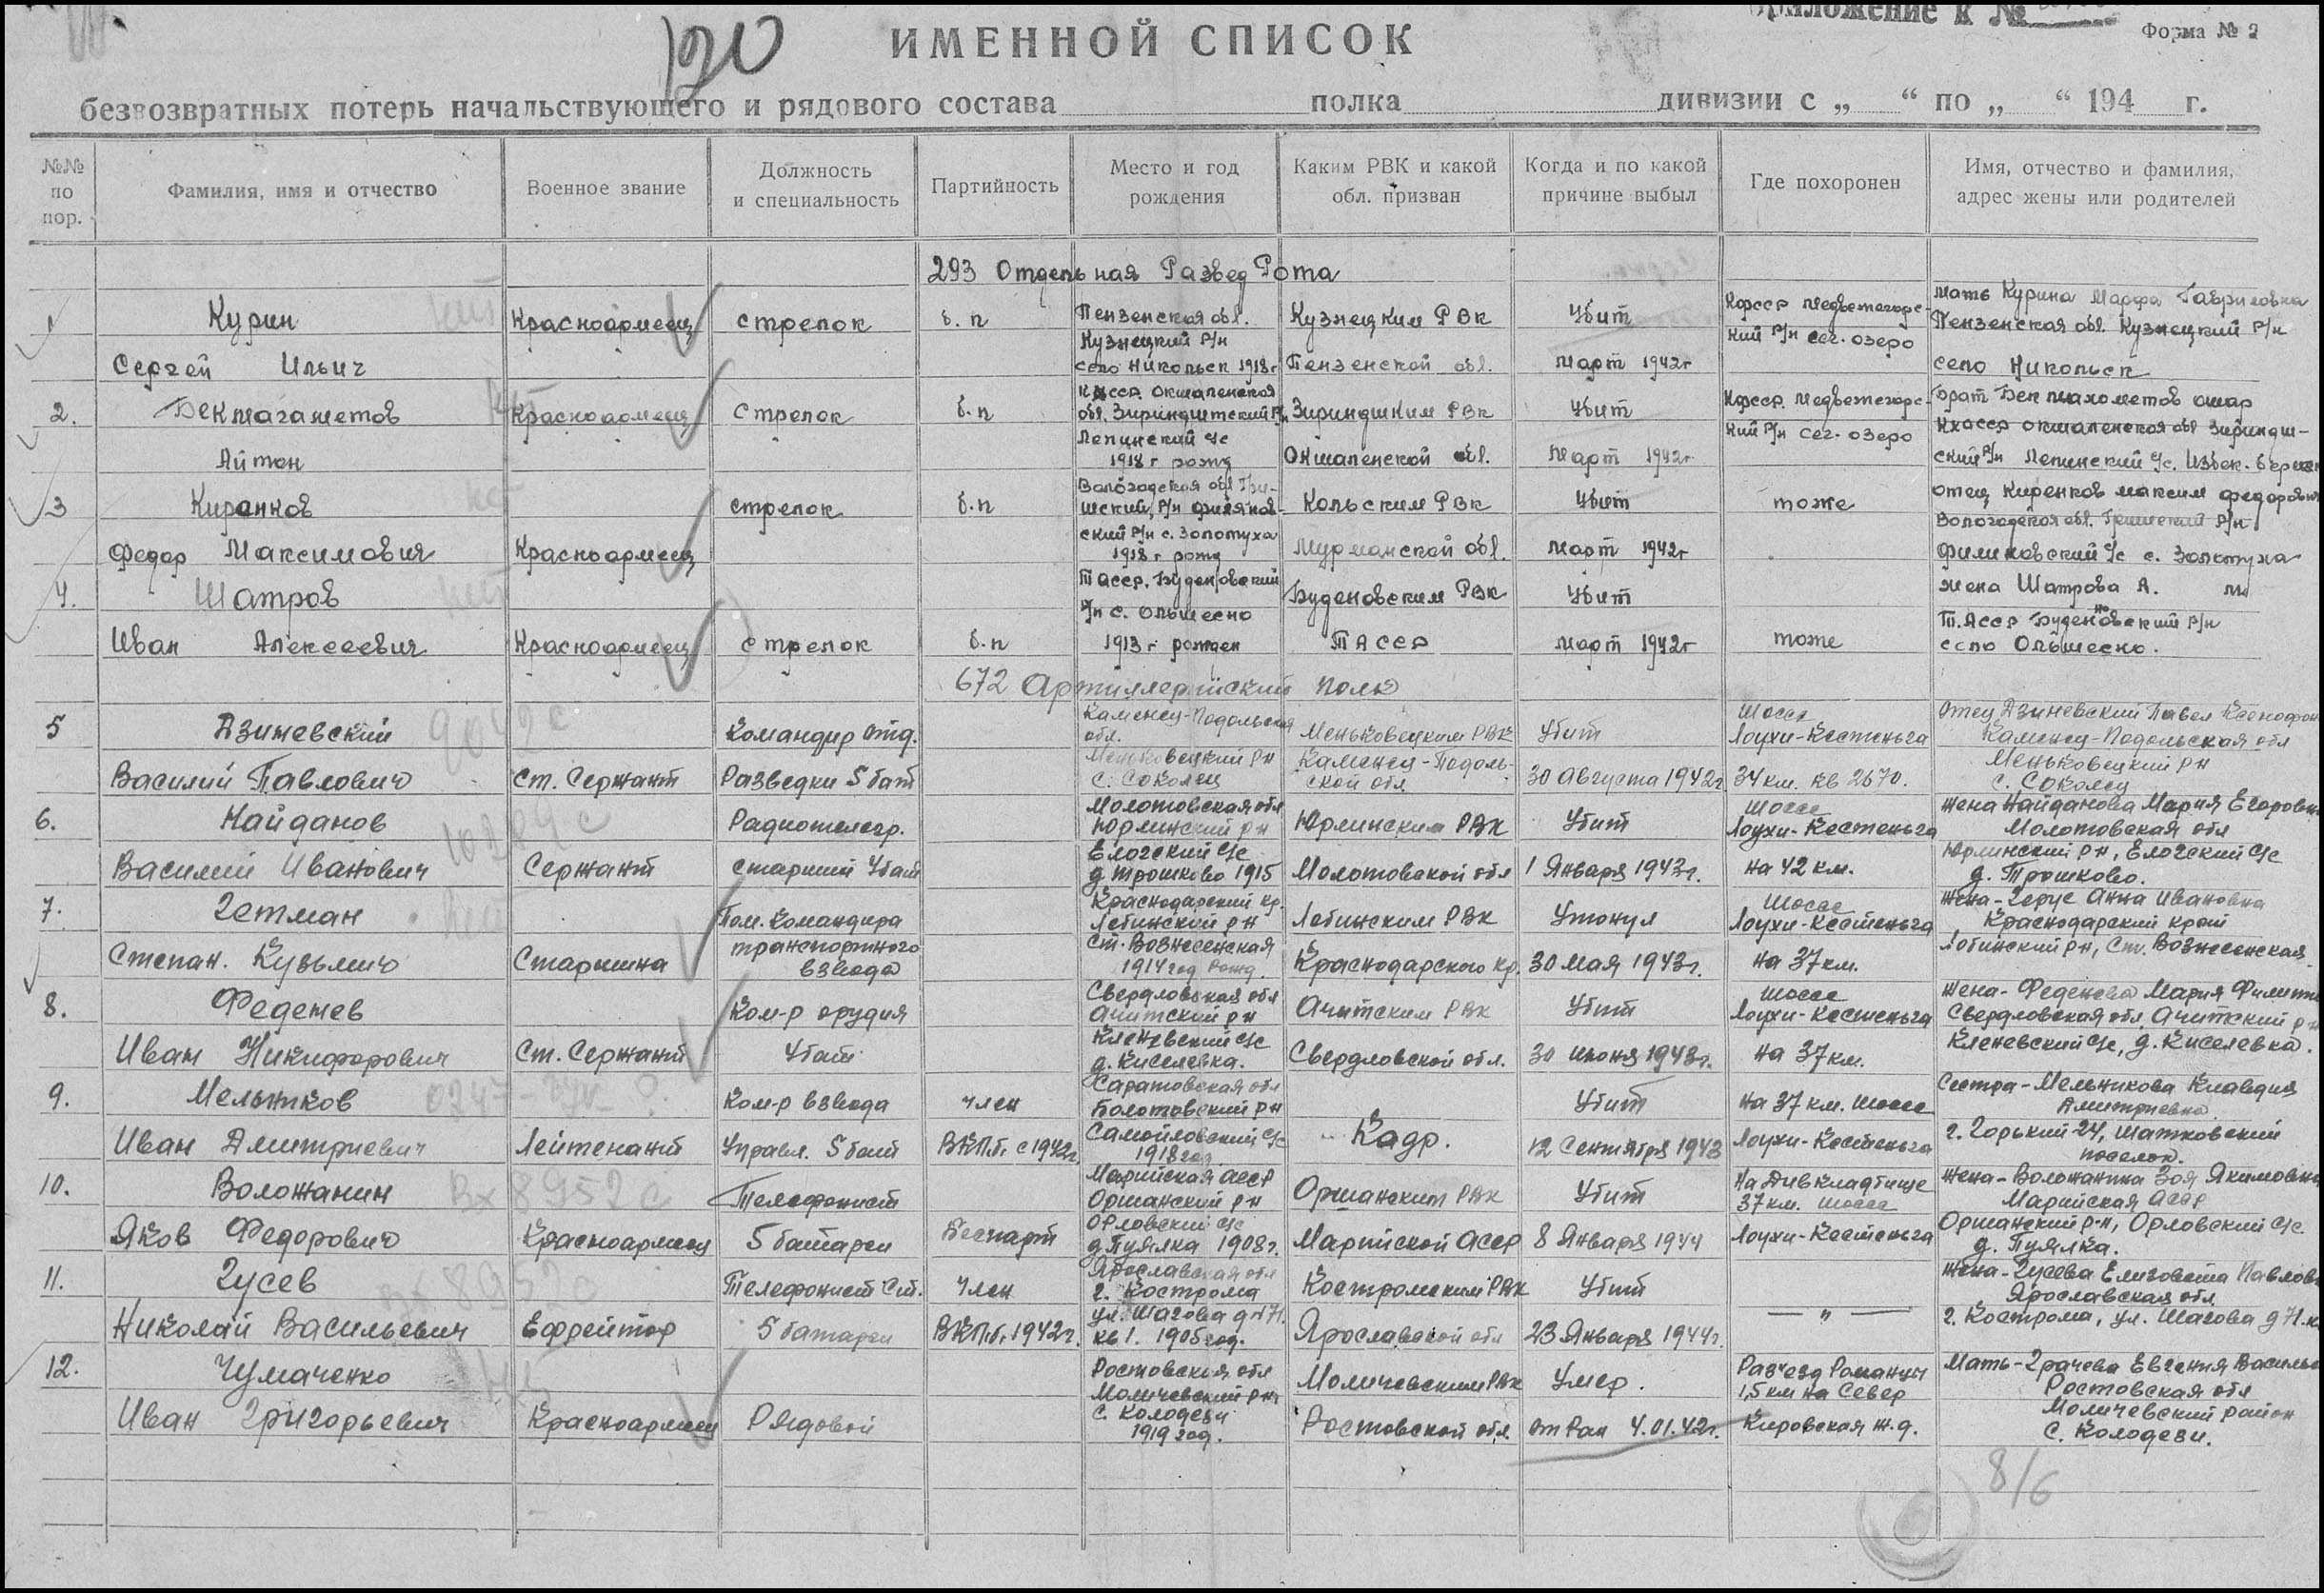 Приложение к №
Форма № 2
120
ИМЕННОЙ СПИСОК
безвозвратных потерь начальствующего и рядового состава полка дивизии с „ “ по „ “ 194 г.
№№ по пор.
Фамилия, имя и отчество
Военное звание
Должность и специальность
Партийность
Место и год рождения
Каким РВК и какой обл. призван
Когда и по какой причине выбыл
Где похоронен
Имя, отчество и фамилия, адрес жены или родителей
293 Отдельная Развед Рота
1
Курин
Сергей Ильич
Красноармеец
стрелок
б.п
Пензенская обл.
Кузнецкий р/н
село Никольск 1918 г
Кузнецким РВК
Пензенской обл.
Убит
март 1942г
Кфсср медвежегорс-
кий р/н сег. озеро
мать Курина Марфа Гавриловна
Пензенская обл. Кузнецкий р/н
село Никольск
2.
Бекмагаметов
Айтон
Красноармеец
Стрелок
б.п
обл. Зириндинский р/н
Лепинский с/с
1918 г рожд
Зириндшким РВК
Окмоленской обл.
Убит
март 1942г
Кфсср. медвежегорс-
кий р/н сег. озеро
брат Бекмахометов омар
3
Киранков
Федор Максимович
Красноармеец
стрелок
б.п
Вологодская обл
ский р/н с. Золотуха
1918 г рожд
Кольским РВК
Мурманской обл.
Убит
март 1942г
тоже
отец Киренков максим федорович
Вологодская обл.
филиновский с/с с. Золотуха
4.
Шатров
Иван Алексеевич
Красноармеец
стрелок
б.п
Тасср. Буденовский
р/н с. Ольмесно
1913 г рожден
Буденовским РВК
ТАССР
Убит
март 1942г
тоже
жена Шатрова А.
Т.Асср Буденовский р/н
село Ольмесно.
672 Артиллерийский полк
5
Дзиневский
Василий Павлович
Ст. Сержант
Командир отд.
Разведки 5 бат
Каменец-Подольская
обл.
Меньковецкий рн
с. Соколец
Меньковецким РВК
Каменец-Подоль-
ской обл
Убит
30 Августа 1942г.
Шоссе
Лоухи-Кестеньга
34 км. кв 2670.
Отец Дзиневский Павел Ксенофон
Каменец-Подольская обл
Меньковецкий рн
с. Соколец
6.
Найданов
Василий Иванович
Сержант
Радиотелегр.
старший 4 бат
Молотовская обл
Юрлинский рн
Елогский с/с
д Трошково 1915
Юрлинским РВК
Молотовской обл
Убит
1 Января 1943г.
Шоссе
Лоухи-Кестеньга
на 42 км.
жена Найданова Мария Егоровна
Молотовская обл
Юрлинский рн, Елогский с/с
д. Трошково.
7.
Гетман
Степан. Кузьмич
Старшина
Пом. Командира
транспортного
взвода
Краснодарский кр.
Лабинский рн
Ст. Вознесенская
1914 год рожд.
Лабинским РВК
Краснодарского кр.
Утонул
30 мая 1943г.
Шоссе
Лоухи-Кестеньга
на 37 км.
жена-Герус Анна Ивановна
Краснодарский край
Лабинский рн, ст. Вознесенская.
8.
Феденев
Иван Никифорович
Ст. Сержант
Ком-р орудия
4 бат.
Свердловская обл
Ачитский рн
Кленевский с/с
д. Киселевка.
Ачитским РВК
Свердловской обл.
Убит
30 июня 1943г.
Шоссе
Лоухи-Кестеньга
на 37 км.
жена-Феденева Мария
Свердловская обл Ачитский рн
Кленевский с/с, д. Киселевка.
9.
Мельников
Иван Дмитриевич
Лейтенант
Ком-р взвода
Управл. 5 бат
член
ВКПб. с 1942г.
Саратовская обл
Самойловский с/с
1918 год
Кадр.
Убит
12 Сентября 1943
на 37 км. Шоссе
Лоухи-Кестеньга
Сестра-Мельникова Клавдия
Дмитриевна.
г. Горький 24, Шатковский
поселок.
10.
Воложанин
Яков Федорович
Вх 8952с
Красноармеец
Телефонист
5 батареи
Беспарт
Марийская АССР
Оршанский рн
Орловский с/с
д Пуялка 1908г.
Оршанским РВК
Марийской АССР
Убит
8 Января 1944
На Див кладбище
37 км. шоссе
Лоухи-Кестеньга
жена-Воложанина Зоя Якимовна
Марийская АССР
Оршанский р-н, Орловский с/с
д. Пуялка.
11.
Гусев
Николай Васильевич
Вх 8952с
Ефрейтор
Телефонист Ст.
5 батареи
член
ВКПб. 1942г.
Ярославская обл
г. Кострома
ул. Шагова д №71.
кв 1. 1905 год.
Костромским РВК
Ярославской обл
Убит
23 Января 1944г.
— „ —
Жена-Гусева Елизовета Павлов
Ярославская обл
г. Кострома, ул. Шагова д 71.
12.
Чумаченко
Иван Григорьевич
Красноармеец
Рядовой
Ростовская обл
Моличевский рн
с. Колодези
1919 год.
Моличевским РВК
Ростовской обл.
Умер.
от Ран 4.01.42г.
Раз'езд Романцы
1,5 км на Север
Кировская ж.д.
Мать-Грачева Евгения Василь
Ростовская обл
Моличевский район
с. Колодези.
8/6